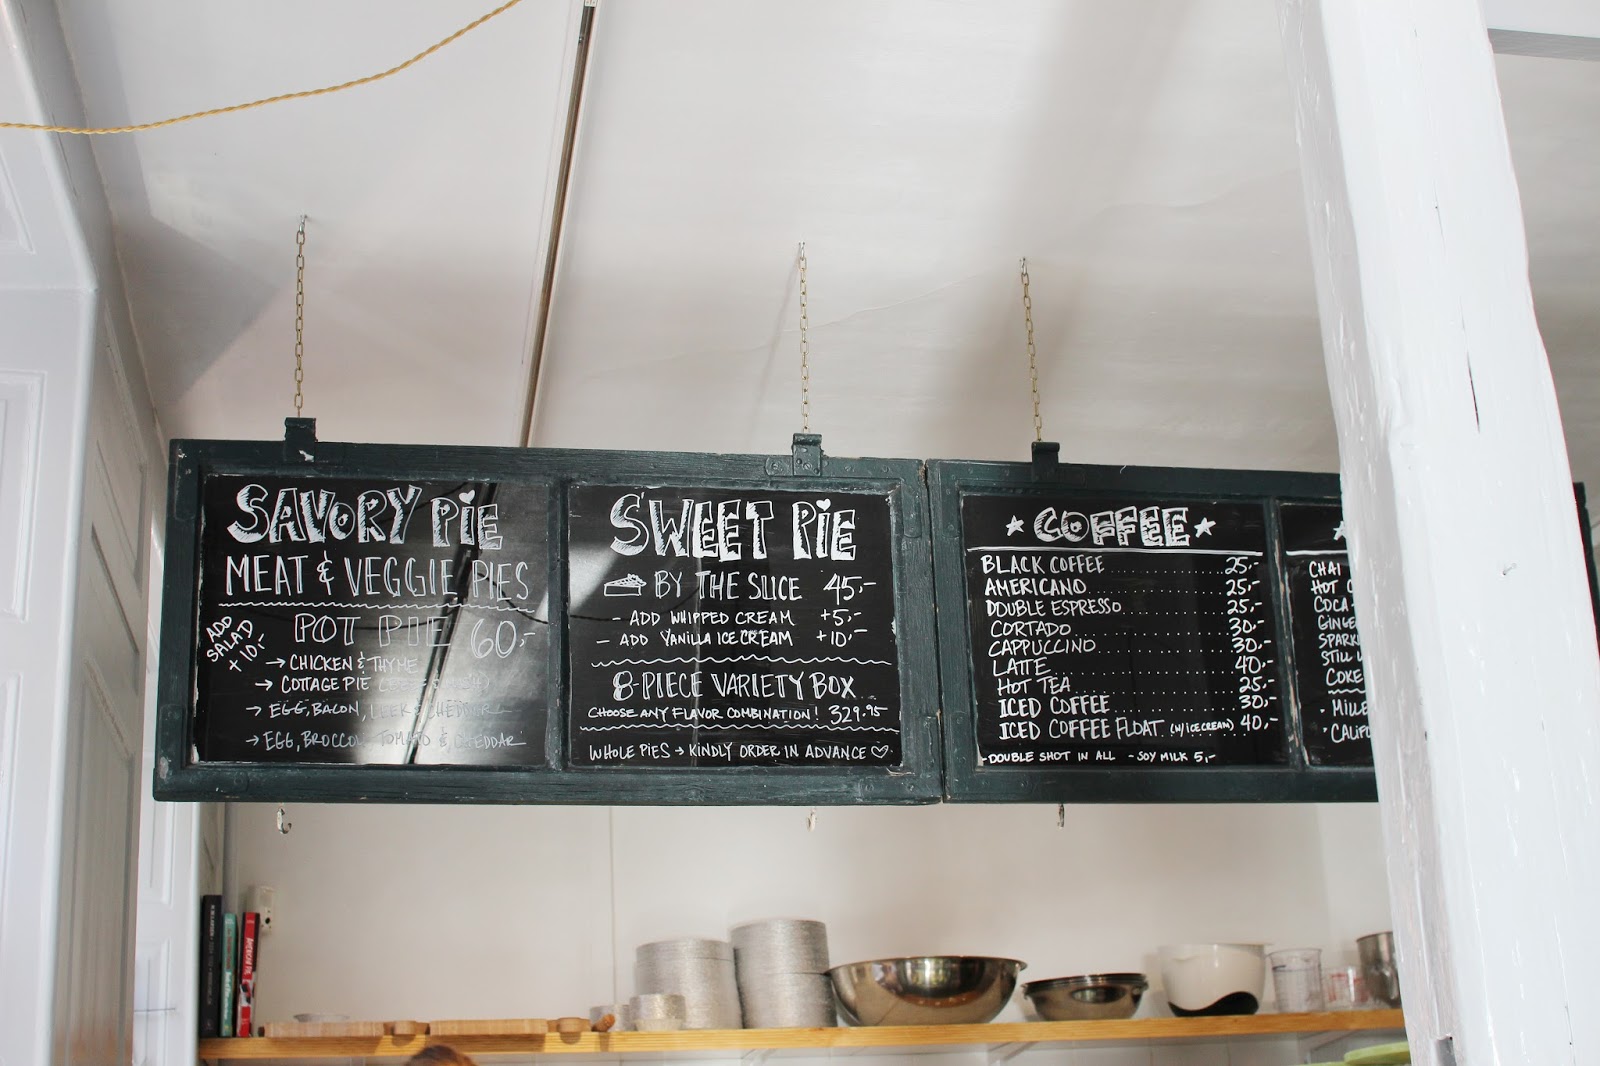 SAVORY PIE
MEAT & VEGGIE PIES
ADD
SALAD
+10,-
POT PIE 60,-
→ CHICKEN & THYME
→ COTTAGE PIE
→ EGG, BACON, LEEK & CHEDDAR
→ EGG, BROCCOLI, TOMATO & CHEDDAR
SWEET PIE
BY THE SLICE 45,-
- ADD WHIPPED CREAM +5,-
- ADD VANILLA ICE CREAM +10,-
8-PIECE VARIETY BOX
CHOOSE ANY FLAVOR COMBINATION! 329.95
WHOLE PIES → KINDLY ORDER IN ADVANCE ♡
★ COFFEE ★
BLACK COFFEE 25,-
AMERICANO 25,-
DOUBLE ESPRESSO 25,-
CORTADO 30,-
CAPPUCCINO 30,-
LATTE 40,-
HOT TEA 25,-
ICED COFFEE 30,-
ICED COFFEE FLOAT (W/ICE CREAM) 40,-
-DOUBLE SHOT IN ALL -SOY MILK 5,-
CHAI
HOT
COCA-
GINGE
SPARK
STILL
COKE
• MILLE
• CALIFO
AMERICAN PIE